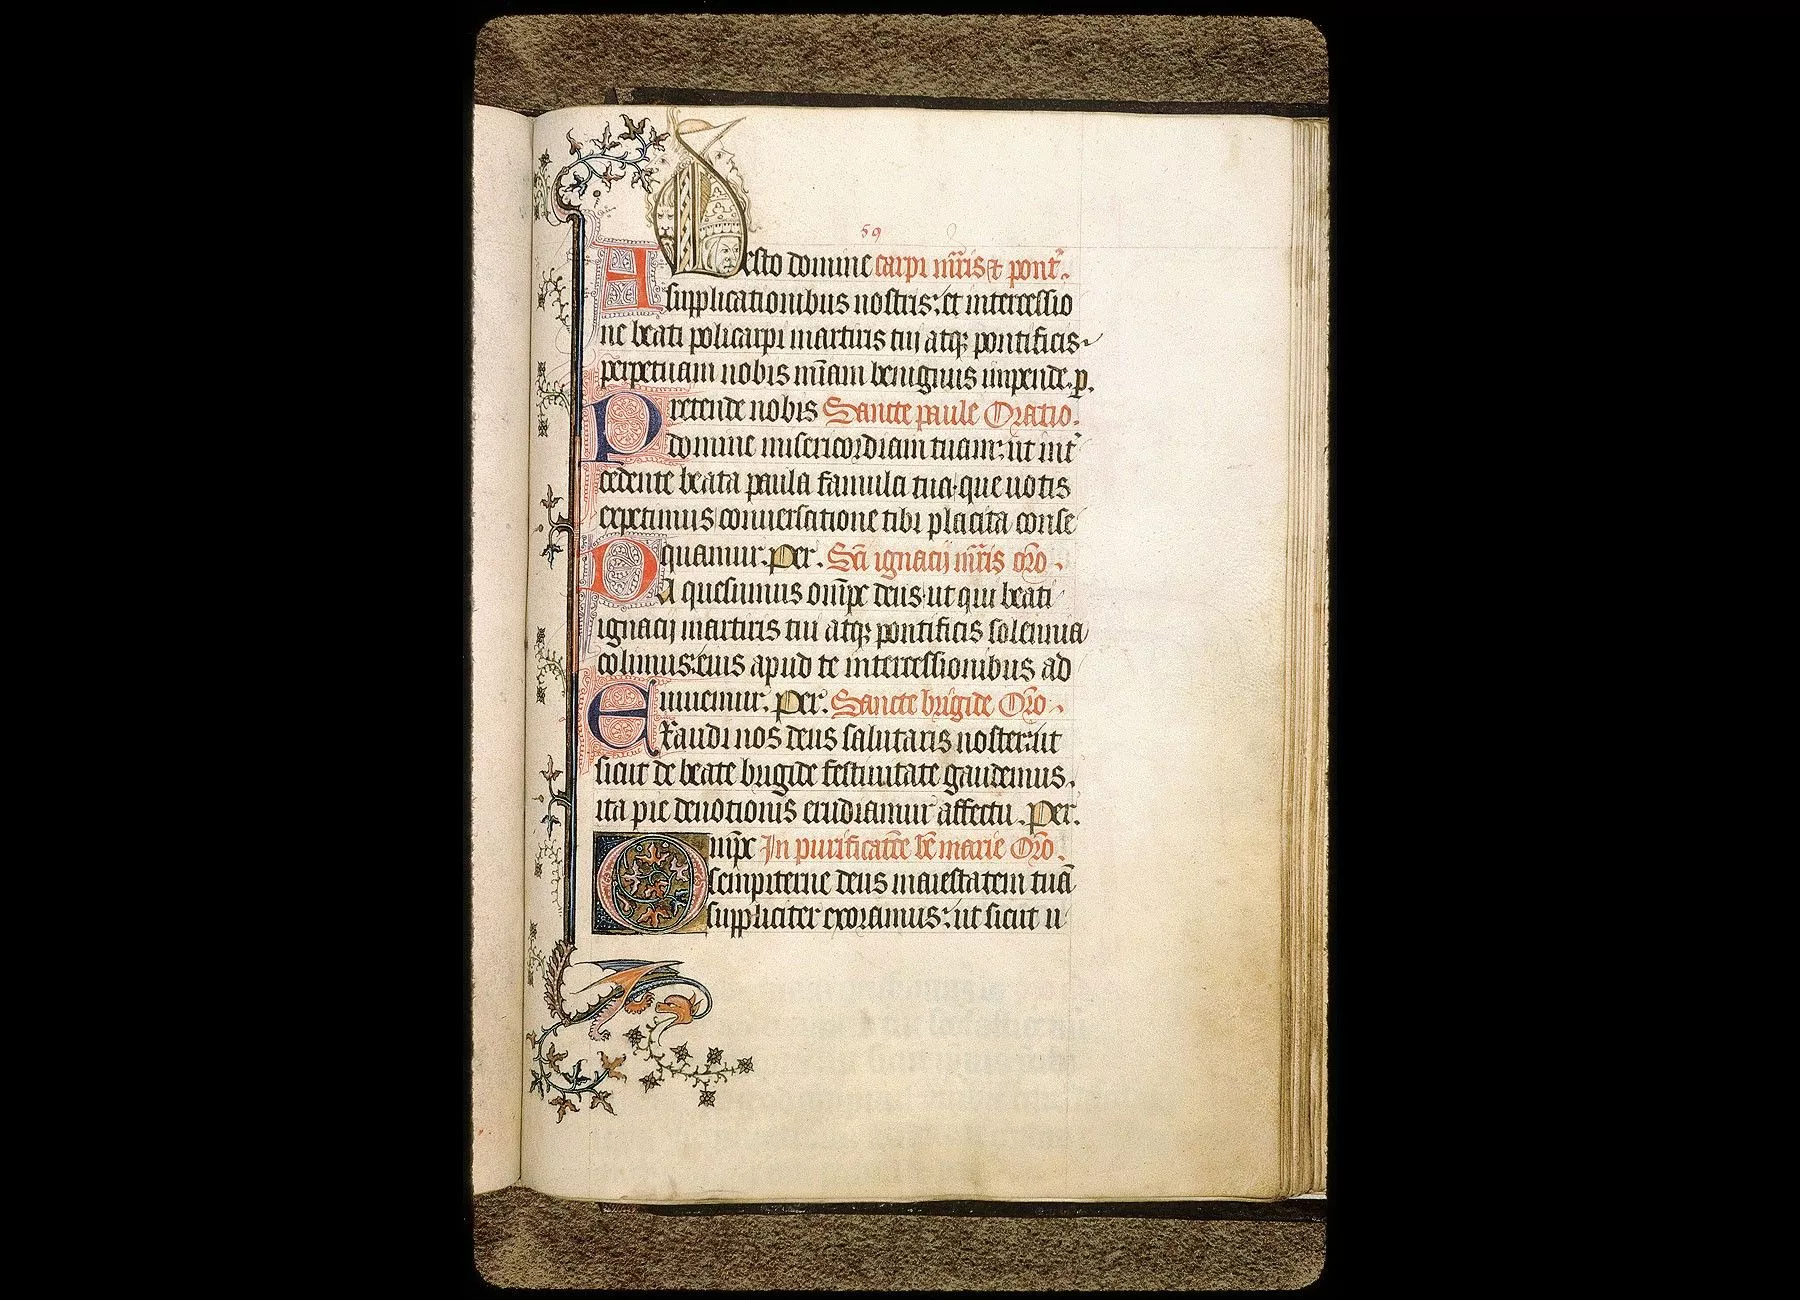 59
Adesto domine carpi mr̄is & pont̄.
supplicationibus nostris: et intercessio
ne beati policarpi martiris tui atqꝫ pontificis
perpetuam nobis mīam benignus impende. p̲.
Pretende nobis Sancte paule Oratio.
domine misericordiam tuam: ut int̄
cedente beata paula famula tua. que uotis
expetimus conuersatione tibi placita conse
quamur. Per. Sc̄i ignacij mr̄is or̄o.
Da quesumus omp̄s deus. ut qui beati
ignacij martiris tui atqꝫ pontificis solennia
colimus: eius apud te intercessionibus ad
iuuemur. Per. Sancte brigide Or̄o.
Exaudi nos deus salutaris noster: ut
sicut de beate brigide festiuitate gaudemus.
ita pie deuotionis erudiamur affectu. Per.
Omp̄s In purificatōe be marie Or̄o.
sempiterne deus maiestatem tuā
suppliciter exoramus: ut sicut u